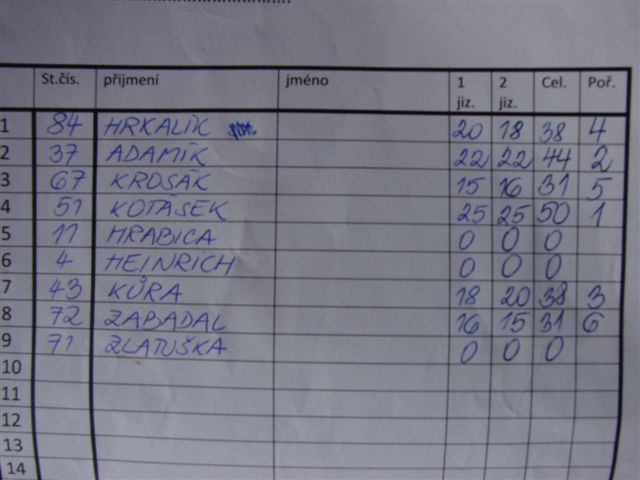 St.čís. přijmení jméno 1 jiz. 2 jiz. Cel. Poř.
1 84 HRKALÍK 20 18 38 4
2 37 ADAMÍK 22 22 44 2
3 67 KROSÁK 15 16 31 5
4 51 KOTÁSEK 25 25 50 1
5 11 HRABICA 0 0 0
6 4 HEINRICH 0 0 0
7 43 KŮRA 18 20 38 3
8 72 ZABADAL 16 15 31 6
9 71 ZLATUŠKA 0 0 0
10
11
12
13
14